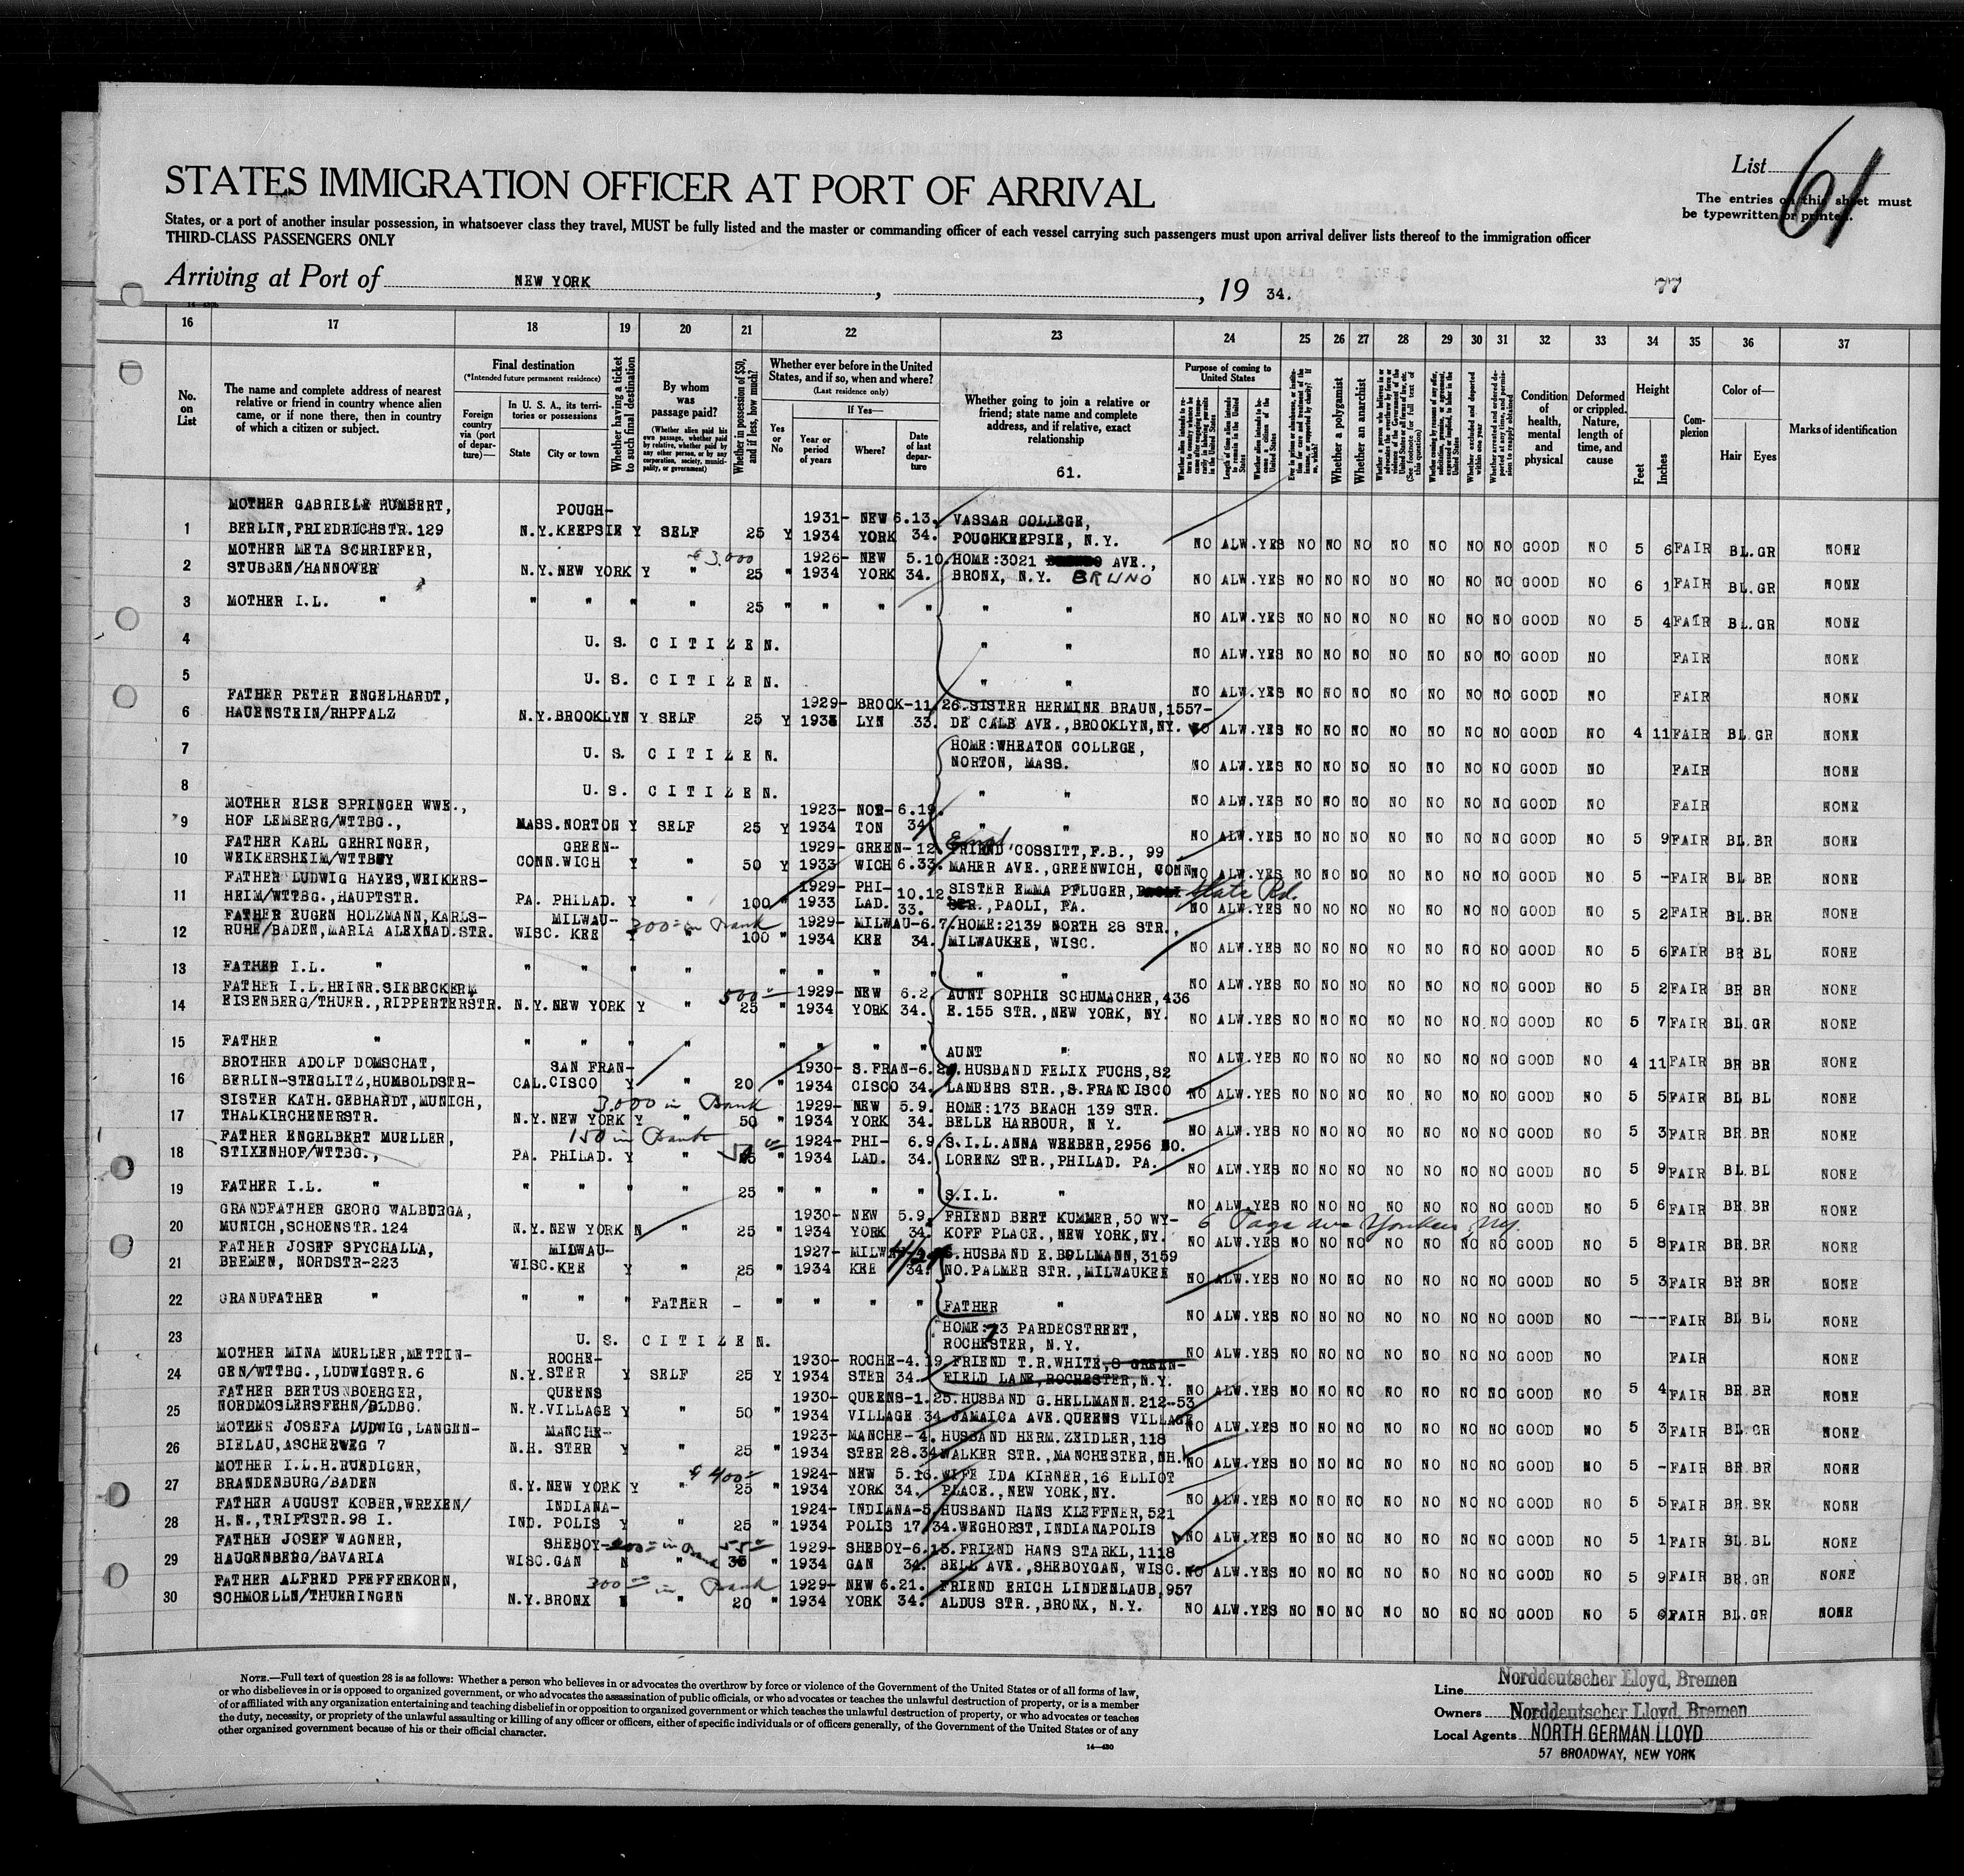 List 61
The entries on this sheet must
be typewritten or printed.
STATES IMMIGRATION OFFICER AT PORT OF ARRIVAL
States, or a port of another insular possession, in whatsoever class they travel, MUST be fully listed and the master or commanding officer of each vessel carrying such passengers must upon arrival deliver lists thereof to the immigration officer
THIRD-CLASS PASSENGERS ONLY
Arriving at Port of NEW YORK, , 19 34. 77
16 17 18 19 20 21 22 23 24 25 26 27 28 29 30 31 32 33 34 35 36 37
No. on List
The name and complete address of nearest relative or friend in country whence alien came, or if none there, then in country of which a citizen or subject.
Final destination
(*Intended future permanent residence)
Foreign country via (port of departure)—
In U. S. A., its territories or possessions
State City or town
Whether having a ticket to such final destination
By whom was passage paid?
(Whether alien paid his own passage, whether paid by relative, whether paid by any other person, or by any corporation, society, municipality, or government)
Whether in possession of $50, and if less, how much?
Whether ever before in the United States, and if so, when and where?
(Last residence only)
Yes or No
If Yes—
Year or period of years
Where?
Date of last departure
Whether going to join a relative or friend; state name and complete address, and if relative, exact relationship
61.
Purpose of coming to United States
Whether a polygamist
Whether an anarchist
Condition of health, mental and physical
Deformed or crippled. Nature, length of time, and cause
Height
Feet Inches
Complexion
Color of—
Hair Eyes
Marks of identification
MOTHER GABRIELE HUMBERT, POUGH- 1931- NEW 6.13. VASSAR COLLEGE,
1 BERLIN,FRIEDRICHSTR.129 N.Y.KEEPSIE Y SELF 25 Y 1934 YORK 34. POUGHKEEPSIE, N.Y. NO ALW.YES NO NO NO NO NO NO NO GOOD NO 5 6 FAIR BL.GR NONE
MOTHER META SCHRIEFER, 3.000 1926- NEW 5.10. HOME:3021 AVE.,
2 STUBBEN/HANNOVER N.Y.NEW YORK Y " 25 " 1934 YORK 34. BRONX, N.Y. BRUNO NO ALW.YES NO NO NO NO NO NO NO GOOD NO 6 1 FAIR BL.GR NONE
3 MOTHER I.L. " " " " " 25 " " " " " " NO ALW.YES NO NO NO NO NO NO NO GOOD NO 5 4 FAIR BL.GR NONE
4 U. S. CITIZEN. " " NO ALW.YES NO NO NO NO NO NO NO GOOD NO FAIR NONE
5 U. S. CITIZEN. " " NO ALW.YES NO NO NO NO NO NO NO GOOD NO FAIR NONE
FATHER PETER ENGELHARDT, 1929- BROOK-11/26. SISTER HERMINE BRAUN,1557-
6 HAUENSTEIN/RHPFALZ N.Y.BROOKLYN Y SELF 25 Y 1933 LYN 33. DE CALB AVE.,BROOKLYN,NY. NO ALW.YES NO NO NO NO NO NO NO GOOD NO 4 11 FAIR BL.GR NONE
7 U. S. CITIZEN. HOME:WHEATON COLLEGE,
NORTON, MASS. NO ALW.YES NO NO NO NO NO NO NO GOOD NO FAIR NONE
8 U. S. CITIZEN. " " NO ALW.YES NO NO NO NO NO NO NO GOOD NO FAIR NONE
MOTHER ELSE SPRINGER WWE., 1923- NOR- 6.19.
9 HOF LEMBERG/WTTBG., MASS.NORTON Y SELF 25 Y 1934 TON 34 " " NO ALW.YES NO NO NO NO NO NO NO GOOD NO 5 9 FAIR BL.BR NONE
FATHER KARL GEHRINGER, GREEN- 1929- GREEN-12. FRIEND COSSITT,F.B., 99
10 WEIKERSHEIM/WTTBUY CONN.WICH Y " 50 Y 1933 WICH 6.33. MAHER AVE.,GREENWICH, CONN. NO ALW.YES NO NO NO NO NO NO NO GOOD NO 5 - FAIR BL BR NONE
FATHER LUDWIG HAYES,WEIKERS- 1929- PHI- 10.12. SISTER EMMA PFLUGER, State Rd.
11 HEIM/WTTBG.,HAUPTSTR. PA. PHILAD. Y " 100 " 1933 LAD. 33. STR.,PAOLI, PA. NO ALW.YES NO NO NO NO NO NO NO GOOD NO 5 2 FAIR BL.BR NONE
FATHER EUGEN HOLZMANN,KARLS- MILWAU- 300 in Bank 1929- MILWAU-6.7. HOME:2139 NORTH 28 STR.,
12 RUHE/BADEN,MARIA ALEXNAD.STR. WISC. KEE Y " 100 " 1934 KEE 34. MILWAUKEE, WISC. NO ALW.YES NO NO NO NO NO NO NO GOOD NO 5 6 FAIR BR BL NONE
13 FATHER I.L. " " " " " " " " " " " NO ALW.YES NO NO NO NO NO NO NO GOOD NO 5 2 FAIR BR BR NONE
FATHER I.L.HEINR.SIEBECKERM 500 1929- NEW 6.2. AUNT SOPHIE SCHUMACHER,436
14 EISENBERG/THUER.,RIPPERTERSTR. N.Y.NEW YORK Y " 25 " 1934 YORK 34. E.155 STR.,NEW YORK, NY. NO ALW.YES NO NO NO NO NO NO NO GOOD NO 5 7 FAIR BL.GR NONE
15 FATHER " " " " " " " " " AUNT " NO ALW.YES NO NO NO NO NO NO NO GOOD NO 4 11 FAIR BR BR NONE
BROTHER ADOLF DOMSCHAT, SAN FRAN- 1930- S.FRAN-6.2 HUSBAND FELIX FUCHS,82
16 BERLIN-STEGLITZ,HUMBOLDSTR- CAL.CISCO Y " 20 " 1934 CISCO 34. LANDERS STR.,S.FRANCISCO NO ALW.YES NO NO NO NO NO NO NO GOOD NO 5 5 FAIR BL BL NONE
SISTER KATH.GEBHARDT,MUNICH, 3.000 in Bank 1929- NEW 5.9. HOME:173 BEACH 139 STR.
17 THALKIRCHENERSTR. N.Y.NEW YORK Y " 50 " 1934 YORK 34. BELLE HARBOUR, N Y. NO ALW.YES NO NO NO NO NO NO NO GOOD NO 5 3 FAIR BR BR NONE
FATHER ENGELBERT MUELLER, 150 in Bank 1924- PHI- 6.9. S.I.L.ANNA WEEBER,2956 NO.
18 STIXENHOF/WTTBG., PA. PHILAD. Y " 50 " 1934 LAD. 34. LORENZ STR.,PHILAD. PA. NO ALW.YES NO NO NO NO NO NO NO GOOD NO 5 9 FAIR BL.BL NONE
19 FATHER I.L. " " " " " 25 " " " " S.I.L. " NO ALW.YES NO NO NO NO NO NO NO GOOD NO 5 6 FAIR BR.BR NONE
GRANDFATHER GEORG WALBURGA, 1930- NEW 5.9. FRIEND BERT KUMMER,50 WY- 6 Ave Yonkers NY.
20 MUNICH,SCHOENSTR.124 N.Y.NEW YORK N " 25 " 1934 YORK 34. KOFF PLACE.,NEW YORK,NY. NO ALW.YES NO NO NO NO NO NO NO GOOD NO 5 8 FAIR BR.BR NONE
FATHER JOSEF SPYCHALLA, MILWAU- 1927- MILW 4/29 HUSBAND E.BOLLMANN,3159
21 BREMEN, NORDSTR-223 WISC.KEE Y " 25 " 1934 KEE 34. NO.PALMER STR.,MILWAUKEE NO ALW.YES NO NO NO NO NO NO NO GOOD NO 5 3 FAIR BR BR NONE
22 GRANDFATHER " " " " FATHER - " " " " FATHER " NO ALW.YES NO NO NO NO NO NO NO GOOD NO ---- FAIR BL BL NONE
23 U. S. CITIZEN. HOME:73 PARDECSTREET,
ROCHESTER, N.Y. NO ALW.YES NO NO NO NO NO NO NO GOOD NO FAIR NONE
MOTHER MINA MUELLER,METTIN- ROCHE- 1930- ROCHE-4.19. FRIEND T.R.WHITE,8 GREEN-
24 GEN/WTTBG.,LUDWIGSTR.6 N.Y.STER Y SELF 25 Y 1934 STER 34. FIELD LANE,ROCHESTER,N.Y. NO ALW.YES NO NO NO NO NO NO NO GOOD NO 5 4 FAIR BR.BR NONE
FATHER BERTUSNBOERGER, QUEENS 1930- QUEENS-1.25. HUSBAND G.HELLMANN.212-53
25 NORDMOSLERSFEHN/OLDBG. N.Y.VILLAGE Y " 50 " 1934 VILLAGE 34. JAMAICA AVE.QUEENS VILLAGE NO ALW.YES NO NO NO NO NO NO NO GOOD NO 5 3 FAIR BL.GR NONE
MOTHER JOSEFA LUDWIG,LANGEN- MANCHE- 1923- MANCHE-4. HUSBAND HERM.ZEIDLER,118
26 BIELAU,ASCHERWEG 7 N.H. STER Y " 25 " 1934 STER 28.34. WALKER STR.,MANCHESTER,NH. NO ALW.YES NO NO NO NO NO NO NO GOOD NO 5 - FAIR BR.BR NONE
MOTHER I.L.H.RUEDIGER, $ 400 1924- NEW 5.16. WIFE IDA KIRNER,16 ELLIOT
27 BRANDENBURG/BADEN N.Y.NEW YORK Y " 25 " 1934 YORK 34. PLACE.,NEW YORK,NY. NO ALW.YES NO NO NO NO NO NO NO GOOD NO 5 5 FAIR BR.BR NONE
FATHER AUGUST KOBER,WREXEN/ INDIANA- 1924- INDIANA-5. HUSBAND HANS KLEFFNER,521
28 H.N.,TRIFTSTR.98 I. IND. POLIS Y " 25 " 1934 POLIS 17.34. WEGHORST,INDIANAPOLIS NO ALW.YES NO NO NO NO NO NO NO GOOD NO 5 1 FAIR BL.BL NONE
FATHER JOSEF WAGNER, SHEBOY- in Bank 55 1929- SHEBOY-6.13. FRIEND HANS STARKL,1118
29 HAUGENBERG/BAVARIA WISC.GAN N " 35 " 1934 GAN 34. BELL AVE.,SHEBOYGAN, WISC. NO ALW.YES NO NO NO NO NO NO NO GOOD NO 5 9 FAIR BR.GR NONE
FATHER ALFRED PFEFFERKORN, 300 in Bank 1929- NEW 6.21. FRIEND ERICH LINDENLAUB,957
30 SCHMOELLN/THUERINGEN N.Y.BRONX " 20 " 1934 YORK 34. ALDUS STR.,BRONX, N.Y. NO ALW.YES NO NO NO NO NO NO NO GOOD NO 5 FAIR BL.GR NONE
NOTE.—Full text of question 28 is as follows: Whether a person who believes in or advocates the overthrow by force or violence of the Government of the United States or of all forms of law,
or who disbelieves in or is opposed to organized government, or who advocates the assassination of public officials, or who advocates or teaches the unlawful destruction of property, or is a member
of or affiliated with any organization entertaining and teaching disbelief in or opposition to organized government or which teaches the unlawful destruction of property, or who advocates or teaches
the duty, necessity, or propriety of the unlawful assaulting or killing of any officer or officers, either of specific individuals or of officers generally, of the Government of the United States or of any
other organized government because of his or their official character.
14—430
Line Norddeutscher Lloyd, Bremen
Owners Norddeutscher Lloyd, Bremen
Local Agents NORTH GERMAN LLOYD
57 BROADWAY, NEW YORK